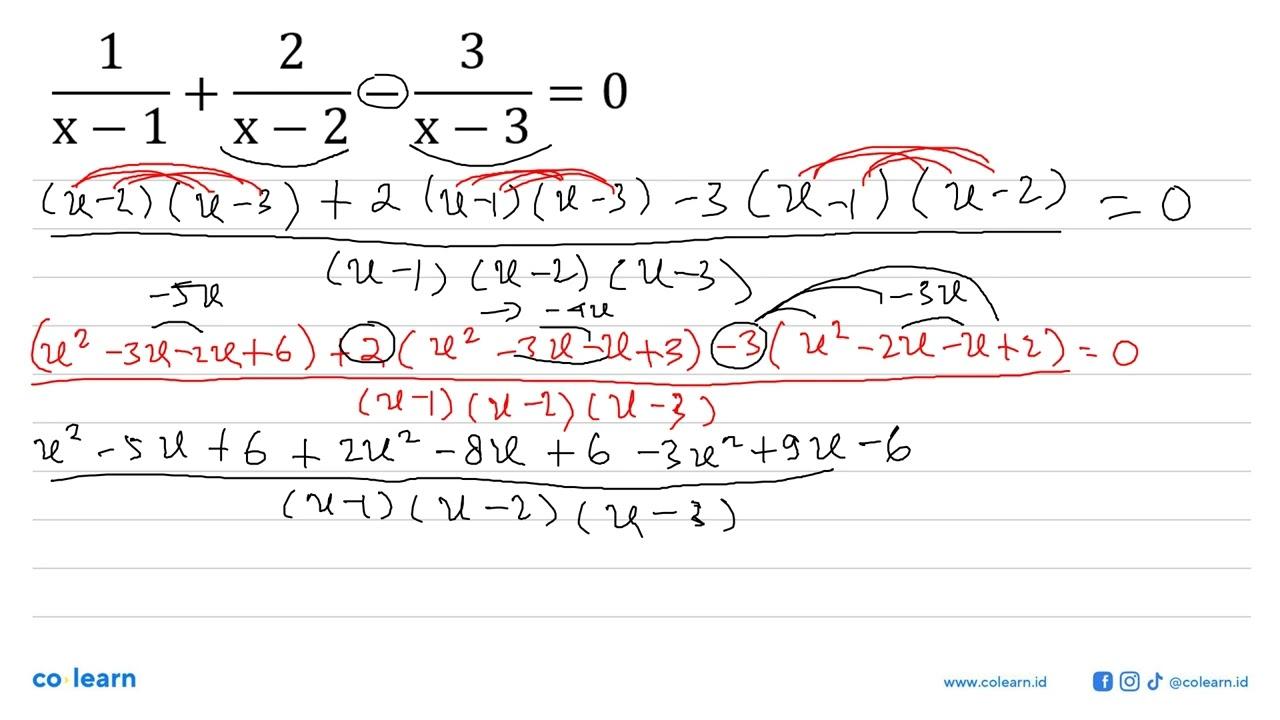 1/(x − 1) + 2/(x − 2) − 3/(x − 3) = 0
((x-2)(x-3) + 2(x-1)(x-3) -3(x-1)(x-2))/((x-1)(x-2)(x-3)) = 0
-5x → -4x -3x
((x² -3x-2x+6) + 2(x² -3x-x+3) -3(x²-2x-x+2))/((x-1)(x-2)(x-3)) = 0
(x² -5x+6+2x²-8x+6-3x²+9x-6)/((x-1)(x-2)(x-3))
co learn
www.colearn.id @colearn.id